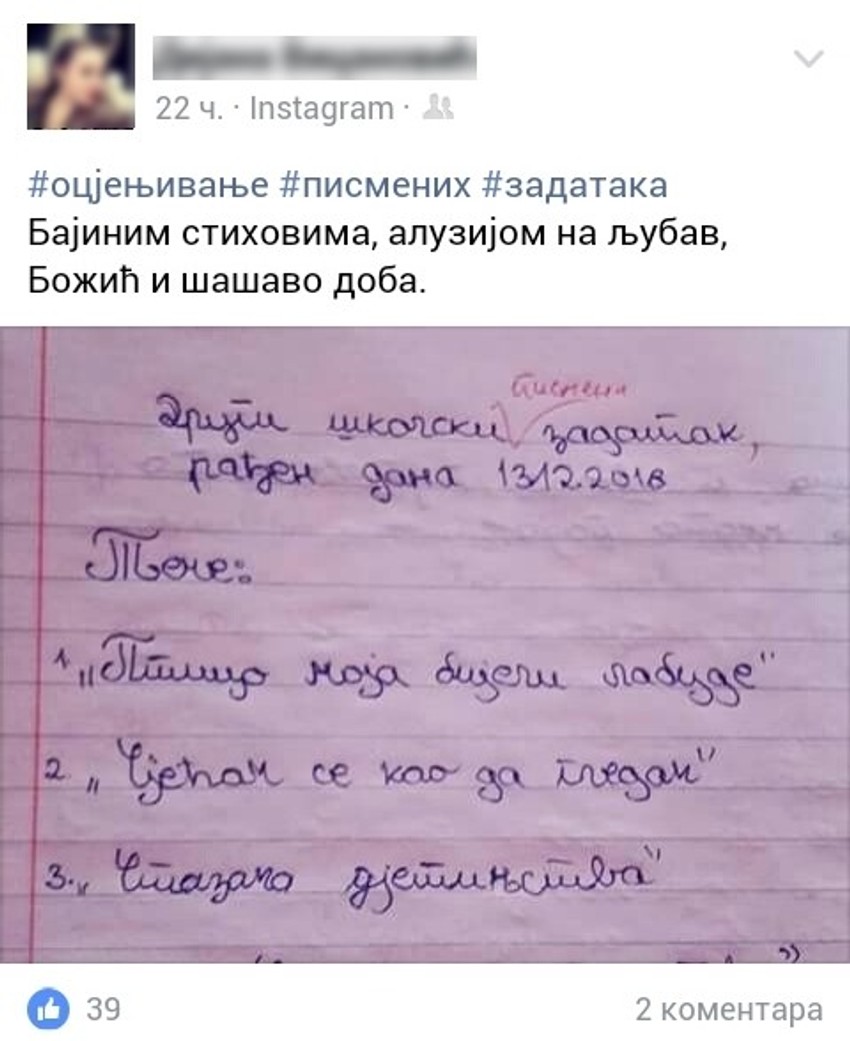 22 ч. · Instagram ·
#оцјењивање #писмених #задатака
Бајиним стиховима, алузијом на љубав,
Божић и шашаво доба.
писмени
Други школски задатак,
рађен дана 13.12.2016
Теме:
1. „Птицо моја бијели лабуде"
2. „Сјећам се као да гледам"
3. „Стазама дјетињства"
39
2 коментара